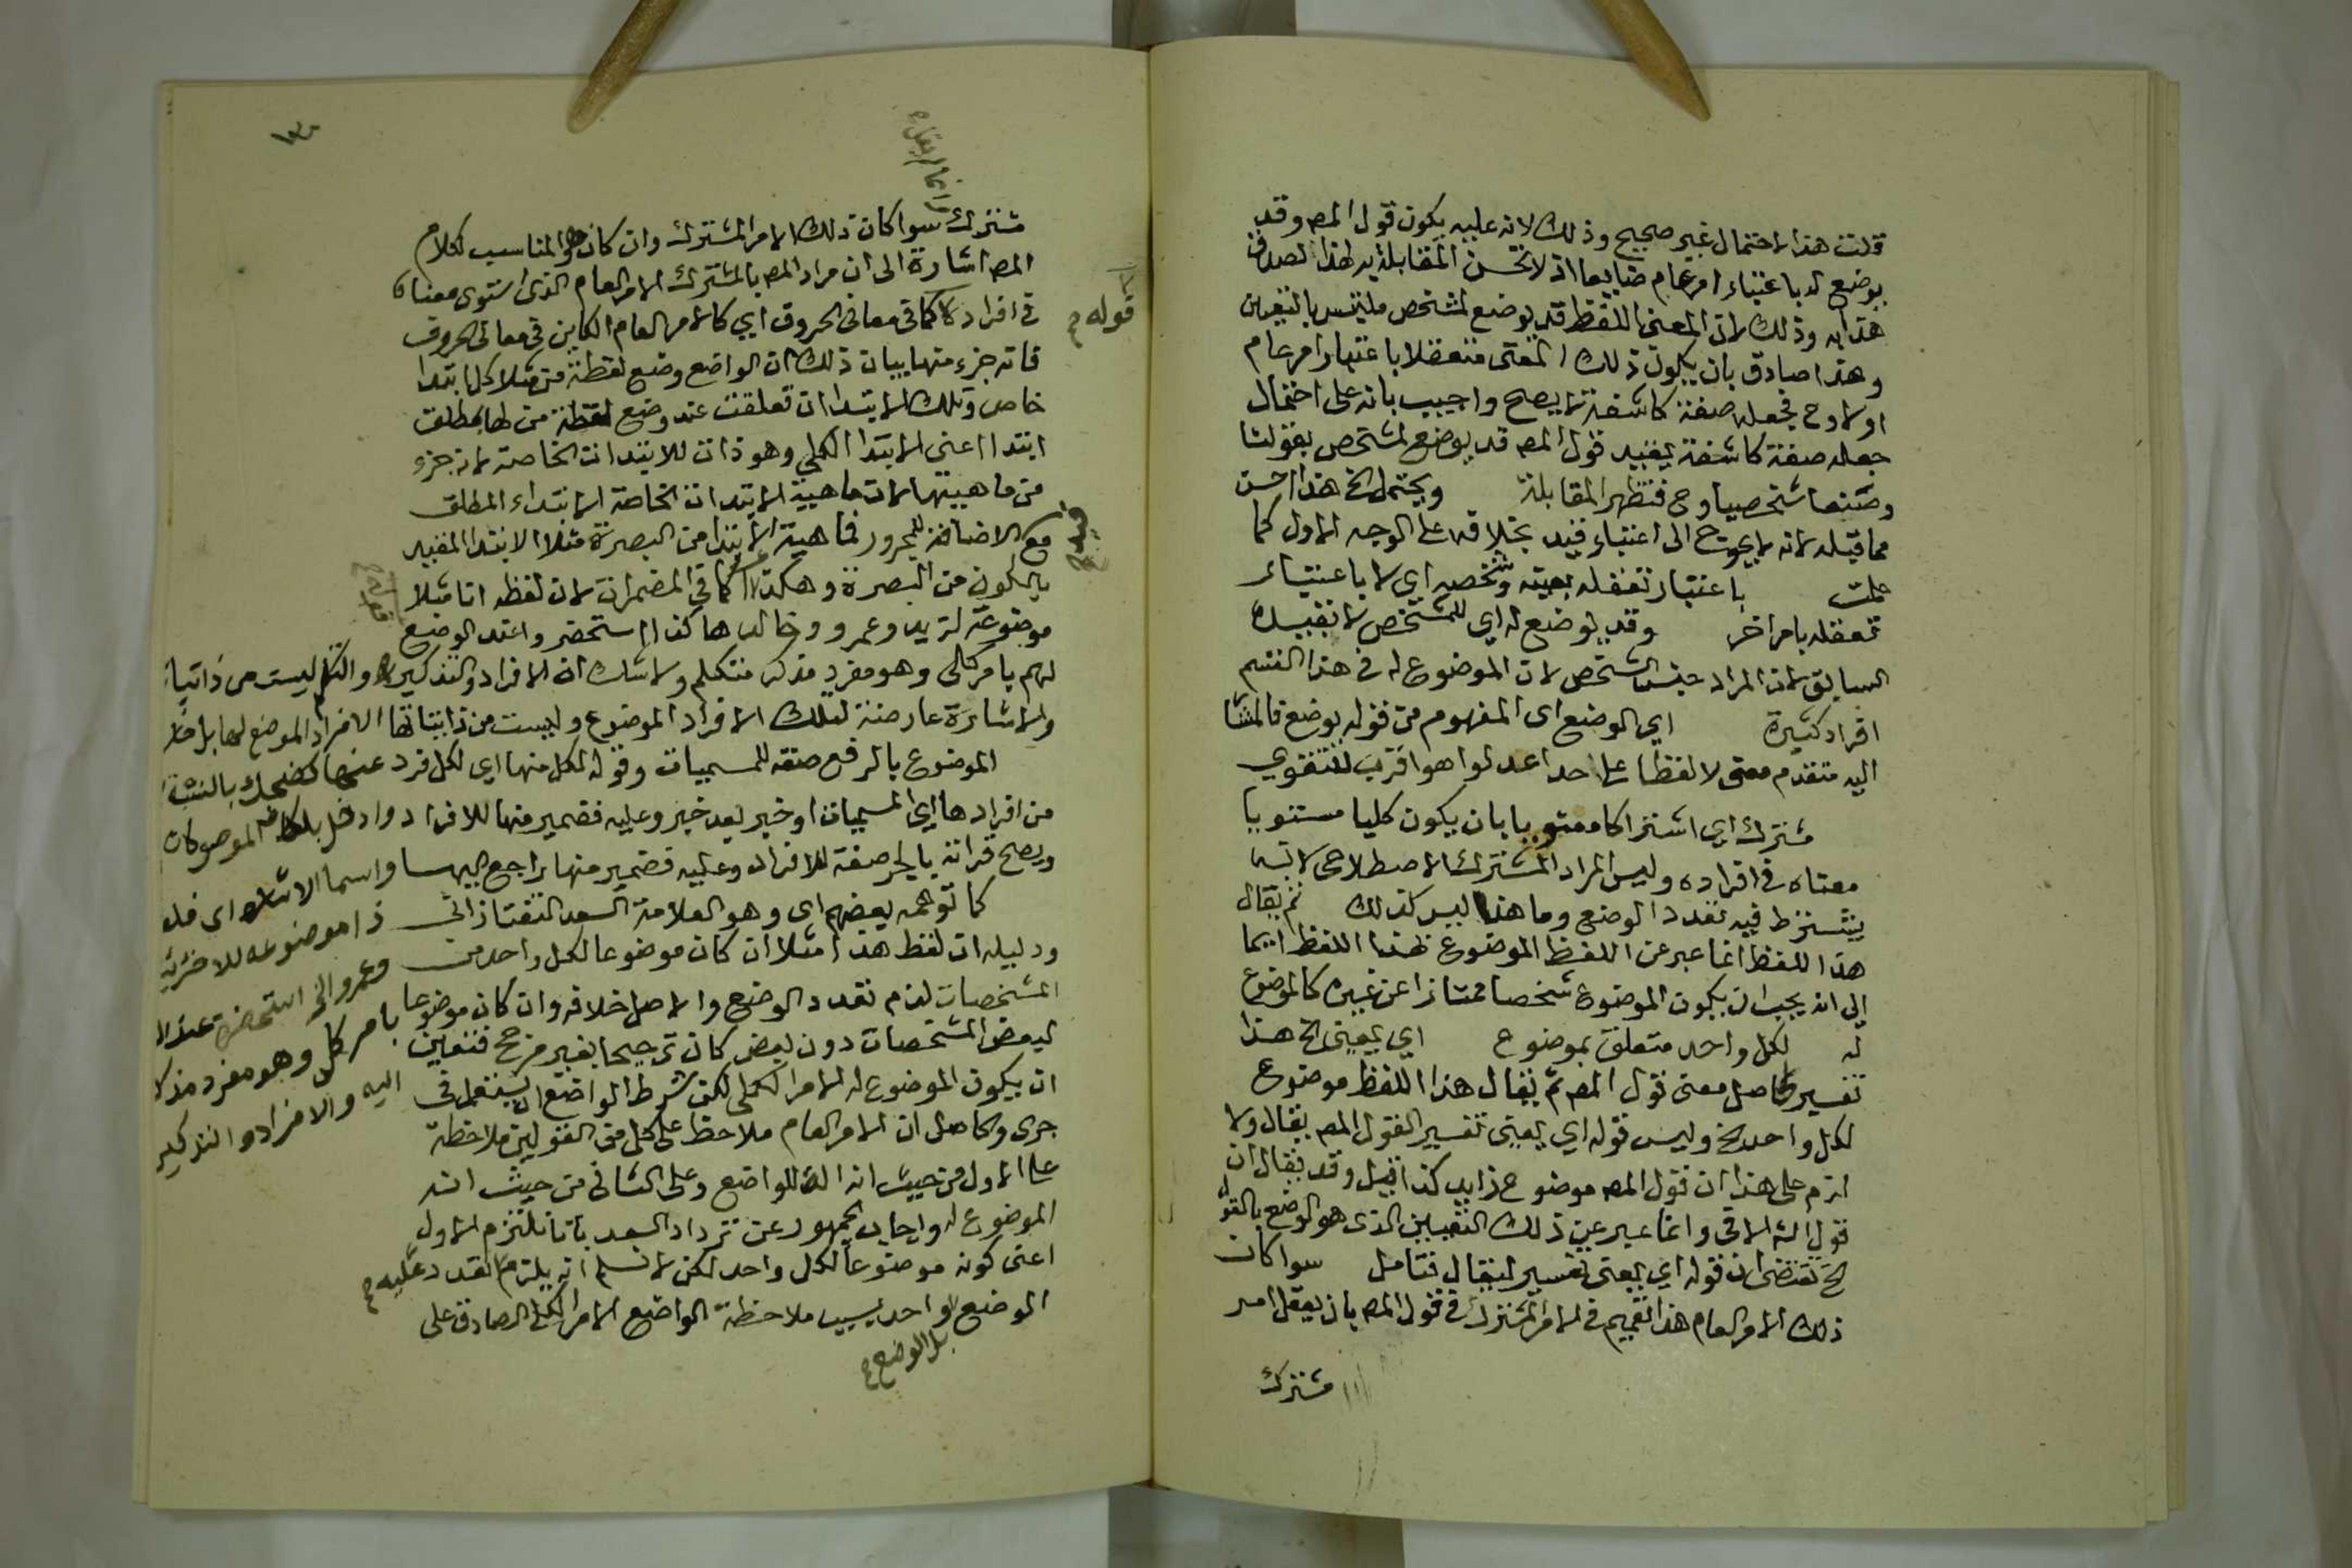 قلت هذا الاحتمال غير صحيح وذلك لانه عليه يكون قول المصـ وقد
يوضع له باعتبار امر عام ضايعا اذ لا تحسن المقابلة لهذا لصدق
هذا به وذلك لان المعنى اللفظ قد يوضع لمشخص ملتبس بالتعين
وهذا صادق بان يكون ذلك المعنى متعقلا باعتبار امر عام
اولا وح فجعله صفة كاشفة لا يصح واجيب بانه على احتمال
جعله صفة كاشفة يقيد قول المصـ قد يوضع لمشخص بقولنا
وضعا شخصيا وح فتظهر المقابلة ويحتمل الخ هذا احسن
مما قبله لانه لا يحوج الى اعتبار قيد بخلافه على الوجه الاول كما
علمت باعتبار تعقله بعينه وشخصه اي لا باعتبار
تعقله بامر اخر وقد يوضع له اي للمشخص لا بقيده
السابق لان المراد جنس المشخص لان الموضوع له في هذا القسم
افراد كثيرة اي الوضع اى المفهوم من قوله يوضع فالمشا
اليه متقدم معنى لا لفظا على حد اعدلوا هو اقرب للتقوي
مشترك اي اشتراكا معنويا بان يكون كليا مستويا
معناه في افراده وليس المراد المشترك الاصطلاحى لانه
يشترط فيه تعدد الوضع وما هنا ليس كذلك ثم يقال
هذا اللفظ انما عبر عن اللفظ الموضوع بهذا اللفظ ايما
الى انه يجب ان يكون الموضوع شخصا ممتازا عن غيره كالموضوع
له لكل واحد متعلق بموضوع اي يعنى الخ هذا
تفسير لحاصل معنى قول المصـ ثم يقال هذا اللفظ موضوع
لكل واحد الخ وليس قوله اي يعنى تفسير القول المصـ يقال ولا
لزم على هذا ان قول المصـ موضوع زايد كذا قيل وقد يقال ان
قول الشـ الاتى وانما عبر عن ذلك التعيين الذى هو الوضع بالقول
الخ يقتضى ان قوله اي يعنى تفسير ليقال فتامل سوا كان
ذلك الامر العام هذا تعميم في الامر المشترك في قول المصـ بان يعقل امر
مشترك
١٣٠
مشترك سوا كان ذلك الامر المشترك وان كان هو المناسب لكلام
المصـ اشارة الى ان مراد المصـ بالمشترك الامر العام الذى استوى معناه
قوله
في افراده كما في معانى الحروف اي كالامر العام الكاين في معانى الحروف
فانه جزء منها بيان ذلك ان الواضع وضع لفظة من مثلا لكل ابتدا
خاص وتلك الابتداات تعلقت عند وضع لفظة من لها بمطلق
ابتدا اعنى الابتدا الكلي وهو ذات للابتداات الخاصة لانه جزء
من ماهيتها لان ماهية الابتداات الخاصة الابتداء المطلق
مع الاضافة للمجرور فماهية الابتدا من البصرة مثلا الابتدا المقيد
بالكون من البصرة وهكذا كما في المضمرات لان لفظه انا مثلا
موضوعة لزيد وعمرو وخالد هاكذا استحضر وا عند الوضع
لهم بامر كلى وهو مفرد مذكر متكلم ولا شك ان الافراد والتذكير والتكلم ليست من ذاتيات
والاشارة عارضة لتلك الافراد الموضوع وليست من ذاتياتها الافراد الموضع لها بل خار
الموضوع بالرفع صفة للمسميات وقوله لكل منها اي لكل فرد عنها كضحك بالنسبة
من افرادها اي المسميات او خبر بعد خبر وعليه فضمير منها للافراد
ويصح قراته بالجر صفة للافراد وعليه فضمير منها راجع اليها واسما الاشارة اى فلفظ
كما توهمه بعضهم اى وهو العلامة السعد التفتازانى ذا موضوعه
ودليله ان لفظ هذا مثلا ان كان موضوعا لكل واحد من وعمرو الخ استحضرت عند ال
المشخصات لزم تعدد الوضع والاصل خلافه وان كان موضوعا بامر كلى وهو مفرد مذكر
لبعض المشخصات دون بعض كان ترجيحا بغير مرجح فتعين اليه والافراد والتذكير
ان يكون الموضوع له الامر الكلى لكن شرط الواضع ان يستعمل في
جزى والحاصل ان الامر العام ملاحظ على كل من القولين ملاحظة
على الاول من حيث انه الة للواضع وعلى الثانى من حيث انه
الموضوع له واجاب الجمهور عن ترداد السعد باننا نلتزم الاول
اعنى كونه موضوعا لكل واحد لكن لا نسلم انه يلزم التعدد عليه
الوضع واحد بسبب ملاحظة الواضع الامر الكلى الصادق على
بل الوضع